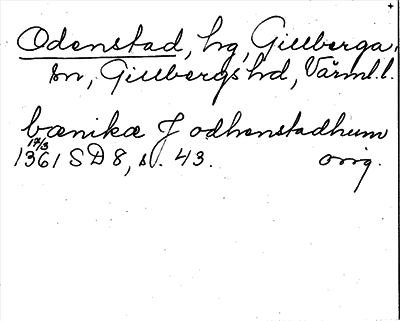 Odenstad, hg, Gillberga,
sn, Gillbergs hd, Värml.l.
bænikæ J odhenstadhum
17/3
1361 SD 8, s. 43. orig.